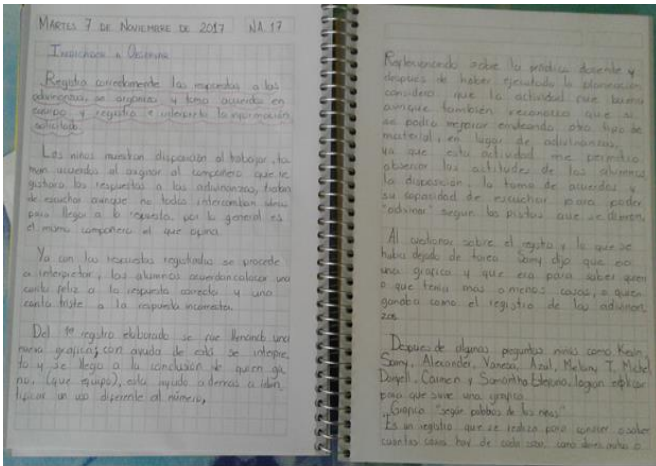 MARTES 7 DE NOVIEMBRE DE 2017 NA. 17
Indicador a Observar
Registra correctamente las respuestas a las
adivinanzas, se organiza y toma acuerdos en
equipo y registra e interpreta la información
solicitada.
Los niños muestran disposición al trabajar, to
man acuerdos al asignar al compañero que re
gistrara las respuestas a las adivinanzas, tratan
de escuchar aunque no todos intercambian ideas
para llegar a la respuesta, por lo general es
el mismo compañero el que opina.
Ya con las respuestas registradas se procede
a interpretar, los alumnos acuerdan colocar una
carita feliz a la respuesta correcta y una
carita triste a la respuesta incorrecta.
Del 1er registro elaborado se fue llenando una
nueva grafica; con ayuda de está se interpre
to y se llego a la conclusión de quien ga
no, (que equipo), esto ayudo ademas a iden
tificar un uso diferente al número,
Reflexionando sobre la práctica docente y
despues de haber ejecutado la planeación
considero que la actividad fue buena
aunque también reconozco que si
se podria mejorar empleando otro tipo de
material, en lugar de adivinanzas,
ya que esta actividad me permitio
observar las actitudes de los alumnos,
la disposición, la toma de acuerdos y
su capacidad de escuchar para poder
"adivinar" según las pistas que se dieron.
Al cuestionar sobre el registro y lo que se
habia dejado de tarea Samy dijo que era
una grafica y que era para saber quien
o que tenia mas o menos cosas, o quien
ganaba como el registro de las adivinan
zas.
Despues de algunas preguntas niños como Kevin,
Samy, Alexander, Vanesa, Azul, Melany T. Michel
Danyell, Carmen y Samantha logran explicar
para que sirve una grafica.
"Grafica "según palabras de los niños"
"Es un registro que se realiza para conocer o saber
cuantas cosas hay de cada cosa, como dones autos o